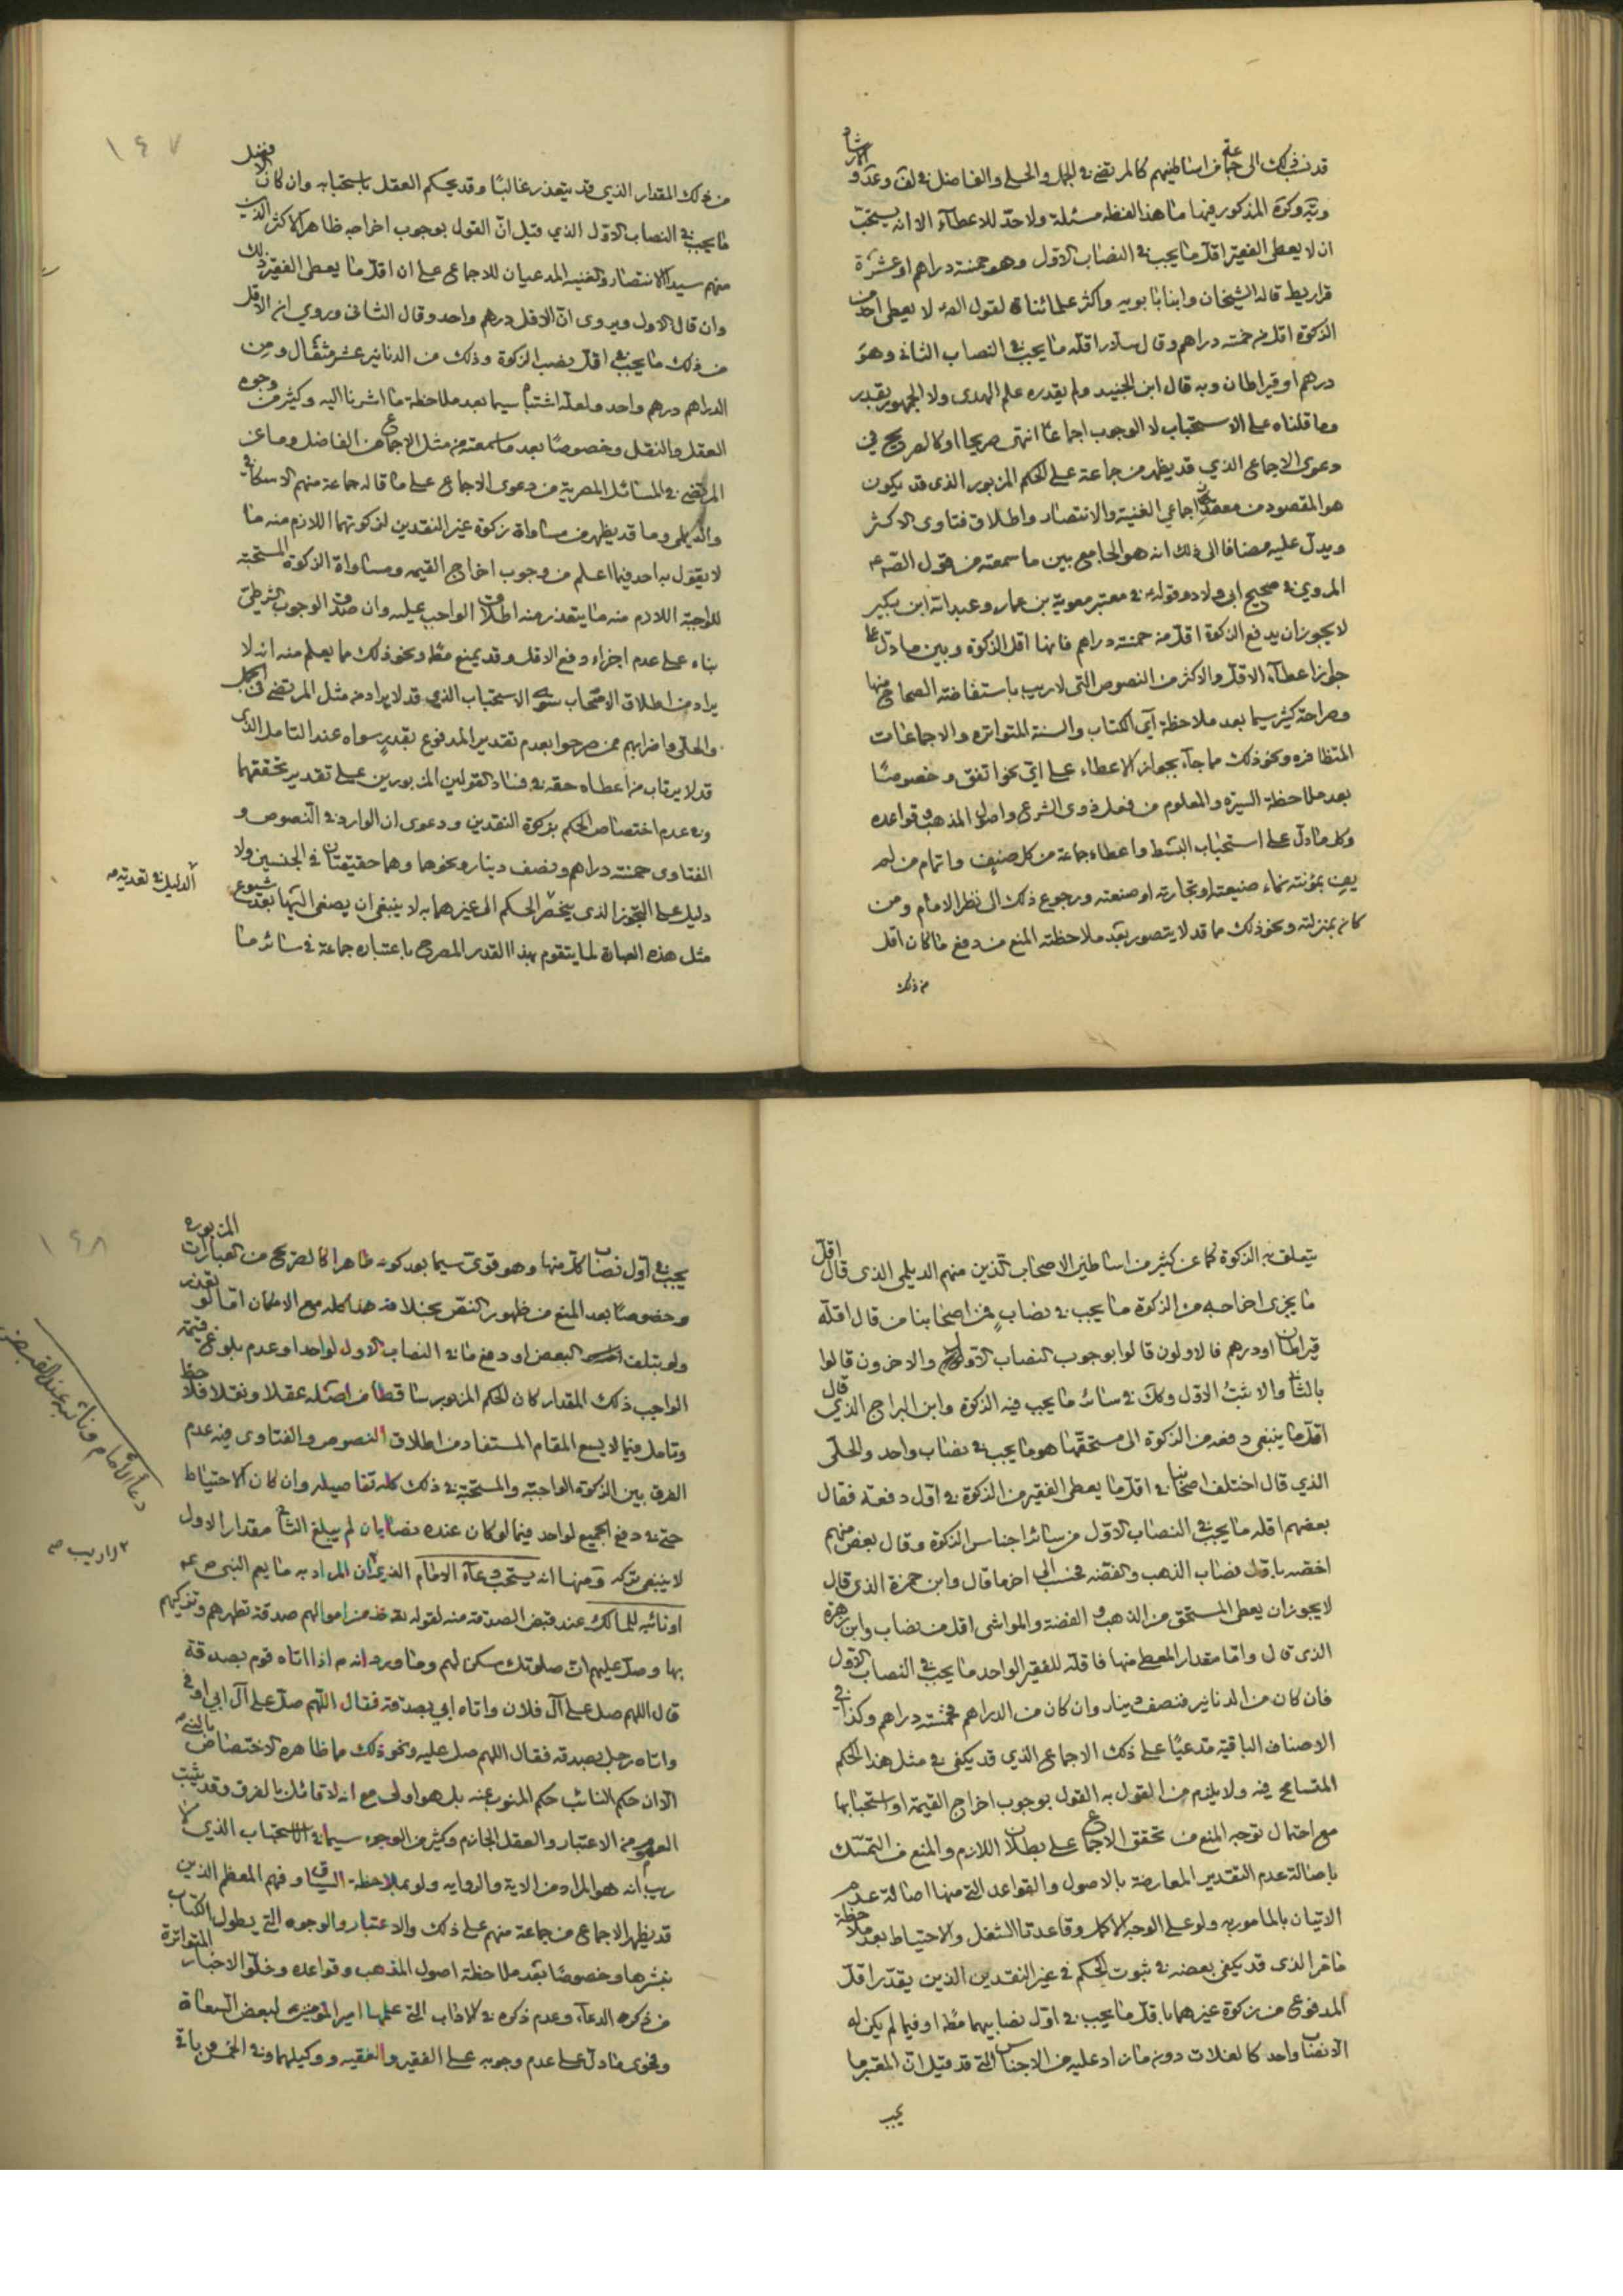 قد نسب ذلك الى جماعة من اساطينهم كالمرتضى في الجمل والحلي والفاضل في لف وعد والارشاد
وتبيه وكره المذكور فيها ما هذا لفظه مسئلة ولا حدّ للاعطاء الا انه يستحبّ
ان لا يعطى الفقير اقلّ ما يجب في النصاب الاول وهو خمسة دراهم او عشرة
قراريط قاله الشيخان وابنا بابويه واكثر علمائنا لقول الصّ لا يعطى احد من
الزكوة اقل من خمسة دراهم وقال سلار اقله ما يجب في النصاب الثاني وهو
درهم او قيراطان وبه قال ابن الجنيد ولم يقدره علم الهدى ولا الجمهور بقدر
وما قلناه على الاستحباب لا الوجوب اجماعًا انتهى صريحا او كالصريح في
دعوى الاجماع الذي قد يظهر من جماعة على الحكم المزبور الذي قد يكون
هو المقصود من معقد اجماعي الغنية والانتصار واطلاق فتاوى الاكثر
ويدل عليه مضافا الى ذلك انه هو الجامع بين ما سمعته من قول الصّ ع
المروي في صحيح ابي ولاد وقوله في معتبر معوية بن عمار وعبد الله ابن بكير
لا يجوز ان يدفع الزكوة اقل من خمسة دراهم فانها اقل الزكوة وبين ما دلّ على
جواز اعطاء الاقل والاكثر من النصوص التي لا ريب باستفاضة الصحاح منها
وصراحة كثير سيما بعد ملاحظة آي الكتاب والسنة المتواترة والاجماعات
المتظافرة ونحو ذلك مما جاء بجواز الاعطاء على اي نحو اتفق وخصوصًا
بعد ملاحظة السيرة والمعلوم من فعل ذوي الشرع واصول المذهب وقواعده
وكل ما دل على استحباب البسط واعطاء جماعة من كل صنف واتمام من لم
يفِ بمؤنته نماء ضيعته او تجارته او صنعته ورجوع ذلك الى نظر الامام ومن
كان بمنزلته ونحو ذلك مما قد لا يتصور بعد ملاحظته المنع من دفع ما كان اقل
من ذلك
١٤٧
من ذلك المقدار الذي قد يتعذر غالبًا وقد يحكم العقل باستحبابه وان كان الافضل
ما يجب في النصاب الاول الذي قيل انّ القول بوجوب اخراجه ظاهر الاكثر الذين
منهم سيد الانتصار والغنية المدعيان للاجماع على ان اقلّ ما يعطى الفقير ذلك
وان قال الاول ويروى انّ الاقل درهم واحد وقال الثاني وروي ان الاقل
من ذلك ما يجب في اقل نصب الزكوة وذلك من الدنانير عشر مثقال ومن
الدراهم درهم واحد ولعله اشتباه سيما بعد ملاحظة ما اشرنا اليه وكثير من وجوه
العقل والنقل وخصوصًا بعد ما سمعته من مثل الاجماع من الفاضل وما عن
المرتضى في المسائل المصرية من دعوى الاجماع على ما قاله جماعة منهم الاسكافي
والديلمي وما قد يظهر من مساواة زكوة غير النقدين لزكوتهما اللازم منه ما
لا يقول به احد فيما اعلم من وجوب اخراج القيمه ومساواة الزكوة المستحبة
للواجبة اللازم منه ما يتعذر منه اطلاق الواجب عليه وان صدق الوجوب الشرطي
بناء على عدم اجزاء دفع الاقل وقد يمنع مط ونحو ذلك مما يعلم منه انه لا
يراد من اطلاق الاصحاب سوى الاستحباب الذي قد لا يراد من مثل المرتضى في الجمل
والحلي واضرابهم ممن صرحوا بعدم تقدير المدفوع بقدرٍ سواه عند التامل الذي
قد لا يرتاب من اعطاه حقه في فساد القولين المزبورين على تقدير تحققهما
وفي عدم اختصاص الحكم بزكوة النقدين ودعوى ان الوارد في النصوص و
الفتاوى خمسة دراهم ونصف دينار ونحوها وهما حقيقتان في الجنسين ولا
دليل على التجوز الذي يختص الحكم الى غيرهما به لا ينبغي ان يصغى اليها بعد شيوع
مثل هذه العبارة لما يتقوم بهذا القدر المصرح باعتباره جماعة في سائر ما
الدليل في تعديته
يتعلق به الزكوة كما عن كثير من اساطين الاصحاب الذين منهم الديلمي الذي قال اقل
ما يجزى اخراجه من الزكوة ما يجب في نصاب فمن اصحابنا من قال اقله
قيراطان او درهم فالاولون قالوا بوجوب النصاب الاول والاخرون قالوا
بالثاني والاثبتُ الاول وكك في سائر ما يجب فيه الزكوة وابن البراج الذي قال
اقل ما ينبغي دفعه من الزكوة الى مستحقها هو ما يجب في نصاب واحد والحلّي
الذي قال اختلف اصحابنا في اقل ما يعطى الفقير من الزكوة في اول دفعة فقال
بعضهم اقله ما يجب في النصاب الاول من سائر اجناس الزكوة وقال بعض منهم
اخصه باول نصاب الذهب والفضه فحسب الى اخر ما قال وابن حمزة الذي قال
لا يجوز ان يعطى المستحق من الذهب والفضة والمواشى اقل من نصاب وابن زهرة
الذي قال وامّا مقدار المعطى منها فاقله للفقير الواحد ما يجب في النصاب الاول
فان كان من الدنانير فنصف دينار وان كان من الدراهم فخمسة دراهم وكذا في
الاصناف الباقية مدعيًا على ذلك الاجماع الذي قد يكفى في مثل هذا الحكم
المتسامح فيه ولا يلزم من القول به القول بوجوب اخراج القيمة او استحبابها
مع احتمال توجه المنع من تحقق الاجماع على بطلان اللازم والمنع من التمسّك
باصالة عدم التقدير المعارضة بالاصول والقواعد التي منها اصالة عدم
الاتيان بالمامور به ولو على الوجه الاكمل وقاعدتا الشغل والاحتياط بعد ملاحظة
ما مر الذي قد يكفى بعضه في ثبوت الحكم في غير النقدين الذين يقدّر اقل
المدفوع من زكوة غيرهما باقل ما يجب في اول نصابيهما مط او فيما لم يكن له
الا نصاب واحد كالغلات دون ما زاد عليه من الاجناس التي قد قيل ان المعتبر ما
يجب
١٤٨
يجب في اول نصاب كل منها وهو قوى سيما بعد كونه ظاهرا كالصريح من العبارات المزبورة
وخصوصًا بعد المنع من ظهور النقض بخلافه هذا كله مع الامكان امّا لو تعذر
ولو بتلف البعض او دفع ما في النصاب الاول لواحد او عدم بلوغ قيمة
الواجب ذلك المقدار كان الحكم المزبور ساقطا من اصله عقلا ونقلا فلاحظ
وتامل فيما لا يسع المقام المستفاد من اطلاق النصوص والفتاوى فيه عدم
الفرق بين الزكوة الواجبة والمستحبة في ذلك كله تفاصيله وان كان الاحتياط
حتى في دفع الجميع لواحد فيما لو كان عنده نصابان لم يبلغ الثاني مقدار الاول
لا ينبغي تركه ومنها انه يستحب دعاء الامام الذي ان المراد به ما يعم النبي ص
او نائبه للمالك عند قبض الصدقة منه لقوله تعو خذ من اموالهم صدقة تطهرهم وتزكيهم
بها وصل عليهم ان صلوتك سكن لهم وما ورد انه م اذا اتاه قوم بصدقة
قال اللهم صل على آل فلان واتاه ابي بصدقة فقال اللهم صل على آل ابي اوفى
واتاه رجل بصدقه فقال اللهم صل عليه ونحو ذلك مما ظاهره الاختصاص بالنبي ص
الا ان حكم النائب حكم المنوب عنه بل هو اولى مع انه لا قائل بالفرق وقد يثبت
العموم من الاعتبار والعقل الجازم وكثير من الوجوه سيما في الاستحباب الذي لا
ريب انه هو المراد من الاية والرواية ولو بملاحظة السياق وفهم المعظم الذين
قد يظهر الاجماع من جماعة منهم على ذلك والاعتبار والوجوه التي يطول الكتاب
بنشرها وخصوصًا بعد ملاحظة اصول المذهب وقواعده وخلو الاخبار المتواترة
من ذكره الدعاء وعدم ذكره في الاداب التي علمها امير المؤمنين لبعض السعاة
وفحوى ما دل على عدم وجوبه على الفقير والفقيه ووكيلهما وفي الخمس وباقي
دعاء الامام ونائبه عند القبض
لا ريب